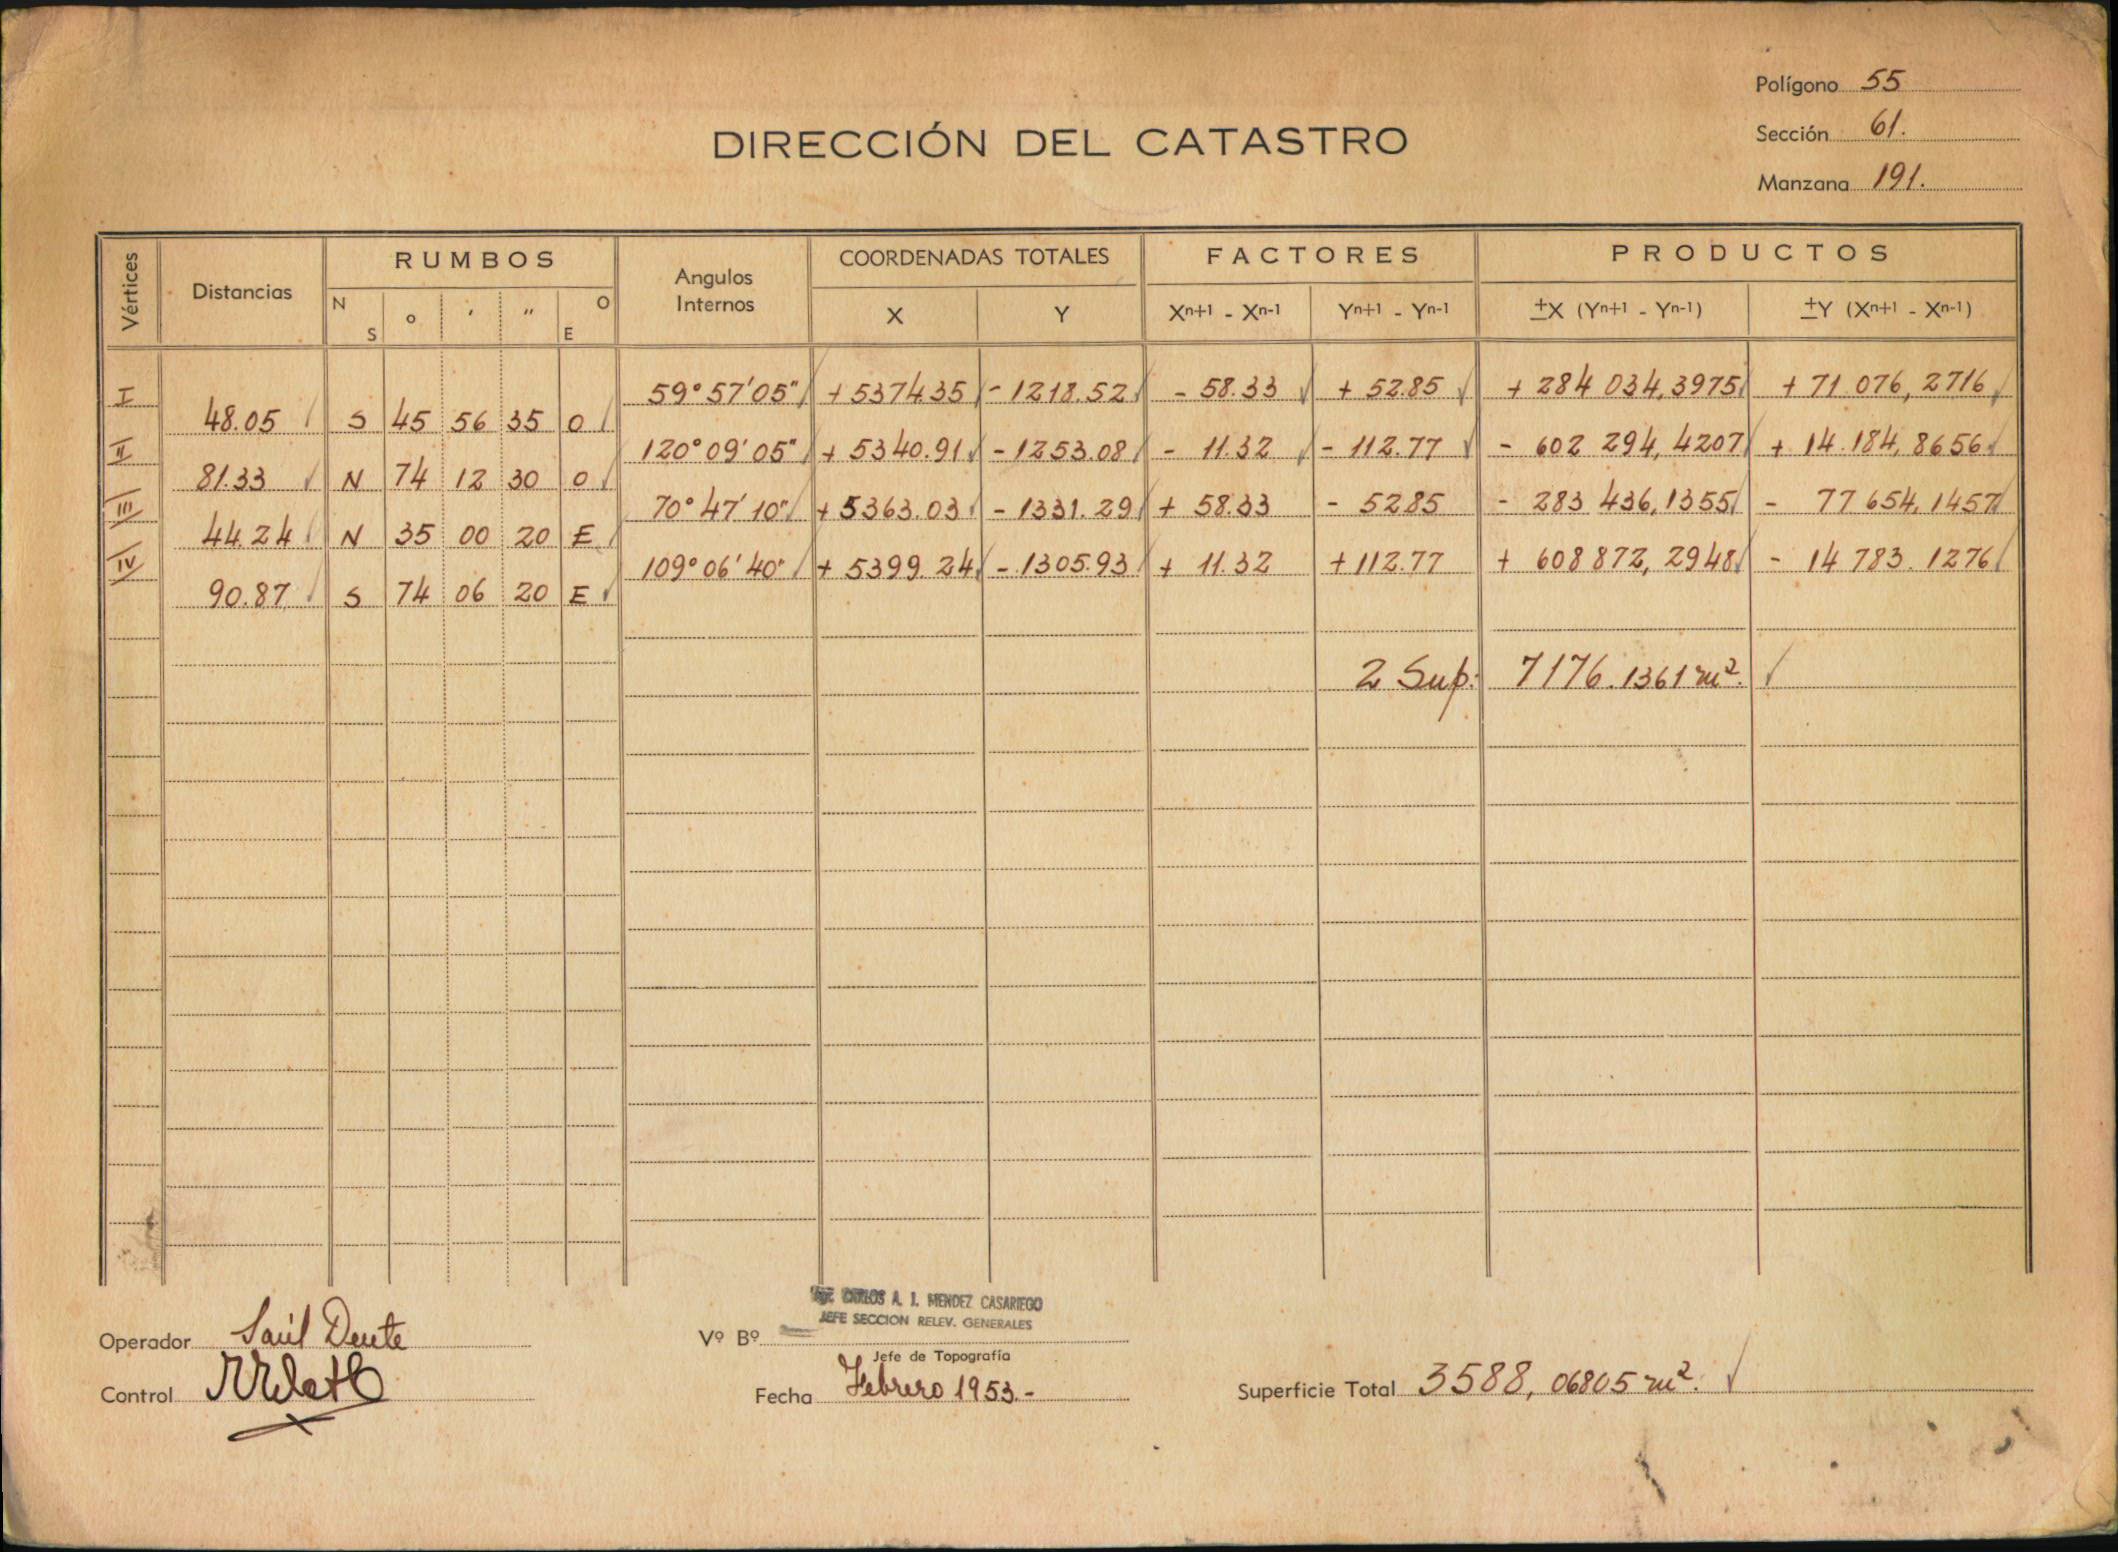 Polígono 55
DIRECCIÓN DEL CATASTRO
Sección 61.
Manzana 191.
Vértices Distancias RUMBOS Angulos Internos COORDENADAS TOTALES FACTORES PRODUCTOS
N S o ′ ″ O E X Y Xn+1 - Xn-1 Yn+1 - Yn-1 ±X (Yn+1 - Yn-1) ±Y (Xn+1 - Xn-1)
I 59° 57' 05" + 5374.35 - 1218.52 - 58.33 + 52.85 + 284 034,3975 + 71 076, 2716
48.05 S 45 56 35 O
II 120° 09' 05" + 5340.91 - 1253.08 - 11.32 - 112.77 - 602 294, 4207 + 14.184, 8656
81.33 N 74 12 30 O
III 70° 47' 10" + 5363.03 - 1331.29 + 58.33 - 52.85 - 283 436, 1355 - 77 654, 1457
44.24 N 35 00 20 E
IV 109° 06' 40" + 5399.24 - 1305.93 + 11.32 + 112.77 + 608 872, 2948 - 14 783. 1276
90.87 S 74 06 20 E
2 Sup: 7176.1361 m².
CARLOS A. J. MENDEZ CASARIEGO
JEFE SECCION RELEV. GENERALES
Operador Saúl Deute
Vº Bº
Jefe de Topografía
Control
Fecha Febrero 1953.-
Superficie Total 3588, 06805 m².